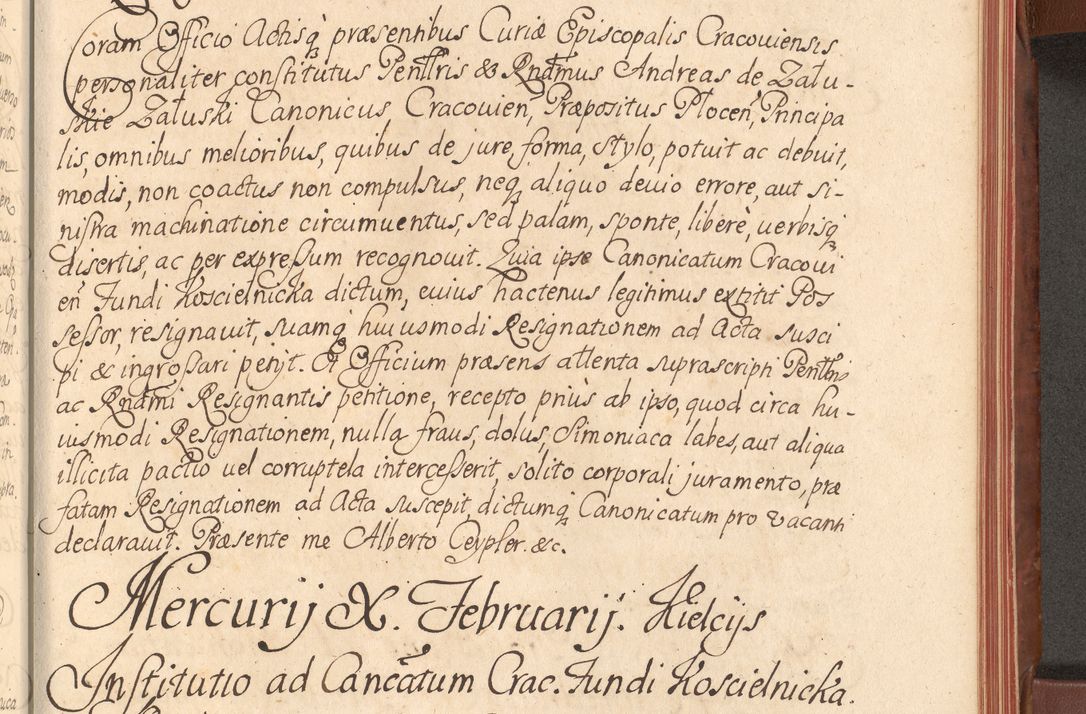 Coram Officio Actisq́ præsentibus Curiæ Episcopalis Cracouiensis
personaliter constitutus Penttris & Rndmus Andreas de Zału-
skie Załuski Canonicus, Cracouien̄, Præpositus Płocen̄, Principa
lis, omnibus melioribus, quibus de jure, forma, stylo, potuit ac debuit,
modis, non coactus non compulsus, neq aliquo deuio errore, aut si-
nistra machinatione circumuentus, sed palam, sponte, liberè, verbisq́
disertis, ac per expressum recognouit. Quia ipse Canonicatum Cracoui
en̄ Fundi Koscielnicka dictum, cuius hactenus legitimus extitit Pos
sessor, resignauit, suamq́ huiusmodi Resignationem ad Acta susci
pi & ingrossari petijt. Et Officium præsens attenta suprascripti Penttris
ac Rndmi Resignantis petitione, recepto priùs ab ipso, quod circa hu-
iusmodi Resignationem, nulla fraus, dolus, Simoniaca labes, aut aliqua
illicita pactio uel corruptela intercesserit, solito corporali juramento, præ
fatam Resignationem ad Acta suscepit, dictumq́ Canonicatum pro vacanti
declarauit. Præsente me Alberto Ceypler. &c.
Mercurij X. Februarij. Kielcijs
Institutio ad Cancātum Crac. Fundi Koscielnicka.